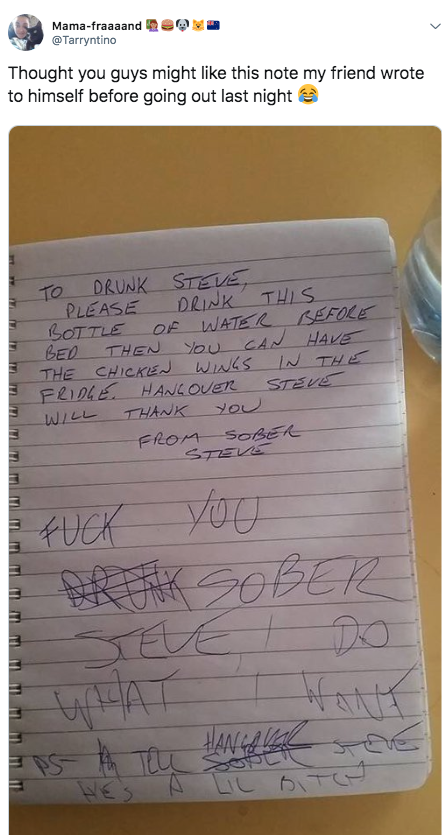 Mama-fraaaand
@Tarryntino
Thought you guys might like this note my friend wrote
to himself before going out last night
TO DRUNK STEVE,
PLEASE DRINK THIS
BOTTLE OF WATER BEFORE
BED THEN YOU CAN HAVE
THE CHICKEN WINGS IN THE
FRIDGE. HANGOVER STEVE
WILL THANK YOU
FROM SOBER
STEVE
FUCK YOU
DRUNK SOBER
STEVE, I DO
WHAT I WANT
HANGOVER
PS- TELL SOBER STEVE
HE'S A LIL BITCH